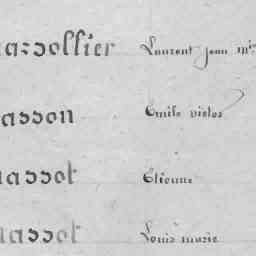 assollier Laurent jean m
asson Emile victor
assot Etienne
assot Louis marie